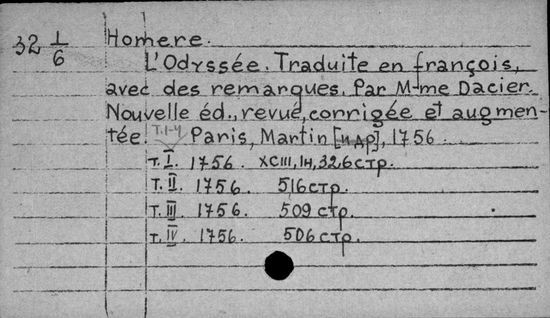 32 1/6 Homere.
L'Odyssée. Traduite en françois,
avec des remarques. Par M-me Dacier.
Nouvelle éd., revue, corrigée et augmen-
tée. T.1-4 Paris, Martin [и др], 1756.
т. I. 1756. XCIII, 1н, 326 стр.
т. II. 1756. 516 стр.
т. III. 1756. 509 стр.
т. IV. 1756. 506 стр.